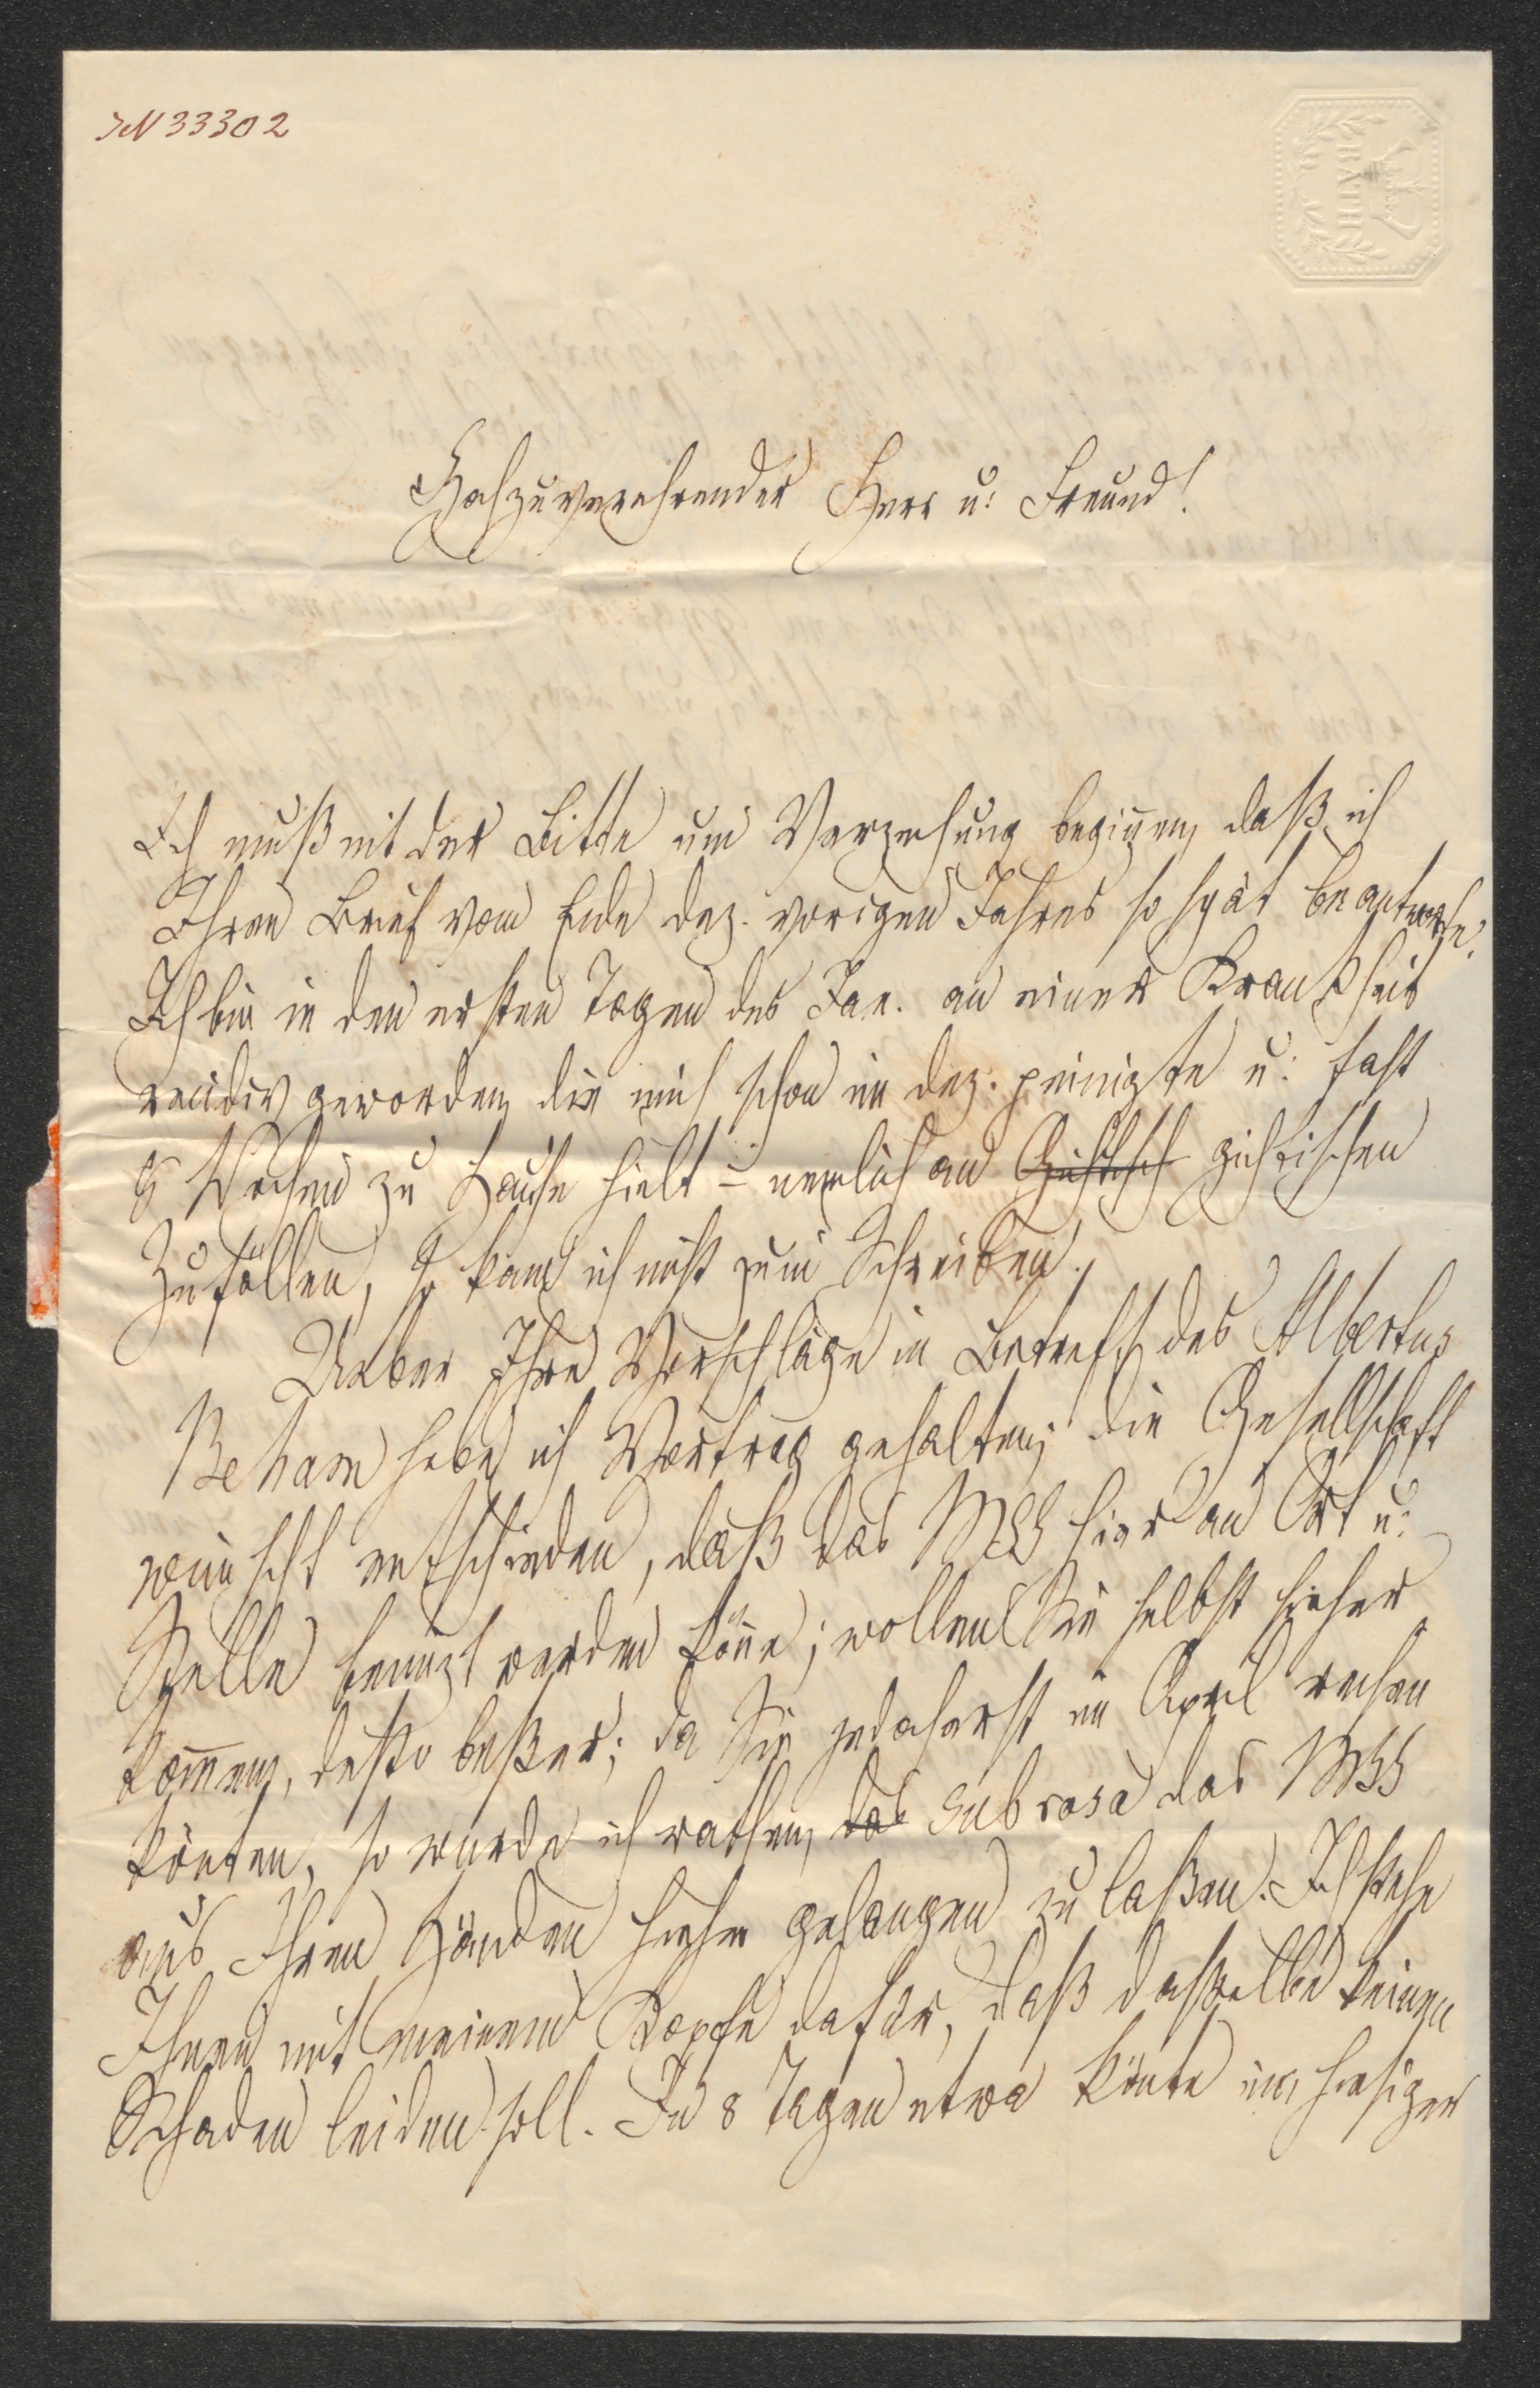 IN 33302
BATH
Hochzuverehrender Herr u: Freund!
Ich muß mit der Bitte um Verzeihung beginnen, daß ich
Ihren Brief vom Ende Dez. vorigen Jahres so spät beantworte.
Ich bin in den ersten Tagen des Jan. an einer Krankheit
recidiv geworden, die mich schon im Dez. peinigte u: fast
6 Wochen zu Hause hielt – nemlich an gichtischen
Zufällen, so kam ich nicht zum Schreiben.
Ueber Ihre Vorschläge in Betreff des Albertus
Beham habe ich Vortrag gehalten; die Gesellschaft
wünscht entschieden, daß das MSS hier an Ort u:
Stelle benüzt werden könne; wollen Sie selbst hieher
kommen, desto beßer; da Sie jedoch erst im April reisen
könten, so würde ich rathen, das sub rosa das MSS
aus Ihren Händen hieher gelangen zu laßen. Ich stehe
Ihnen mit meinem Kopfe dafür, daß daßelbe keinen
Schaden leiden soll. In 8 Tagen etwa könte ein hiesiger